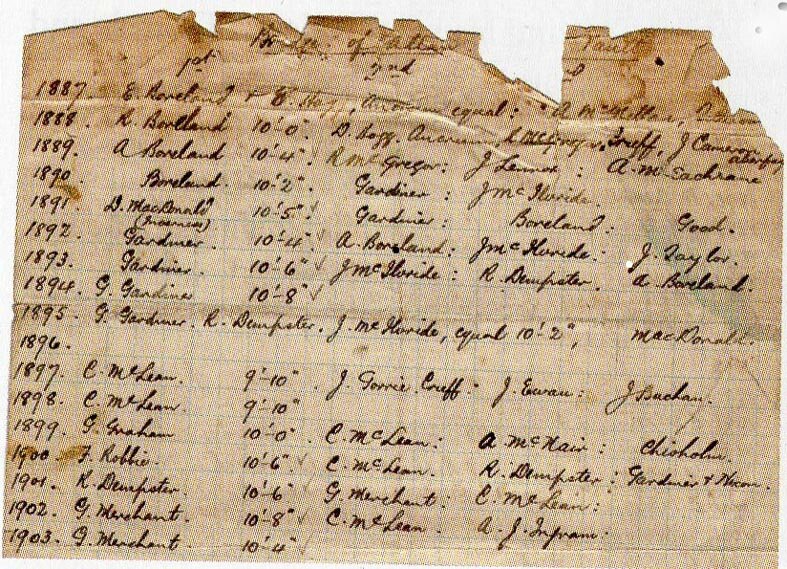 Bridge of Allan Vault
1st 2nd
1887. E. Boreland & D. Hogg, equal: A McKellar,
1888. R. Boreland 10'-0". D. Hogg. Ancrum, R McGregor, Crieff, J Cameron
1889. A Boreland 10'-4". R McGregor: J Lennox: A. McEachrane
1890. Boreland. 10'-2". Gardiner: J McIlvride.
1891. D. MacDonald (Inverness) 10'-5". Gardiner: Boreland: Good.
1892. Gardiner. 10'-4". A. Boreland: J McIlvride: J. Taylor.
1893. Gardiner. 10'-6" J McIlvride: R. Dempster. A Boreland.
1894. G. Gardiner 10'-8"
1895. G. Gardiner. R. Dempster. J. McIlvride, equal 10'-2", MacDonald.
1896.
1897. C. McLean. 9'-10". J Gorrie. Crieff: J. Ewan: J Buchan.
1898. C. McLean. 9'-10"
1899. G. Graham 10'-0" C. McLean: A. McNair: Chisholm.
1900 F. Robbie. 10'-6". C. McLean. R. Dempster: Gardiner & Nicon.
1901. R. Dempster. 10'-6" G. Merchant: C. McLean:
1902. G. Merchant. 10'-8" C. McLean. A. J. Ingram:
1903. G. Merchant 10'-4"